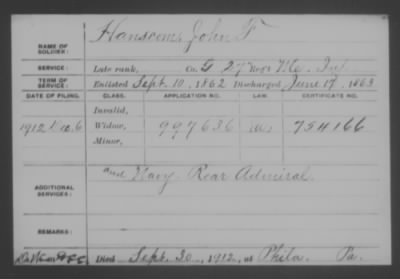 NAME OF SOLDIER: Hanscom, John F
SERVICE: Late rank, Co. G 27 Reg't Me. Inf
TERM OF SERVICE: Enlisted Sept. 10, 1862 Discharged June 17, 1863
DATE OF FILING. CLASS. APPLICATION NO. LAW. CERTIFICATE NO.
Invalid,
1912 Dec. 6 Widow, 997636 754166
Minor,
ADDITIONAL SERVICES: and Navy. Rear Admiral.
REMARKS:
Died Sept. 30, 1912, at Phila. Pa.